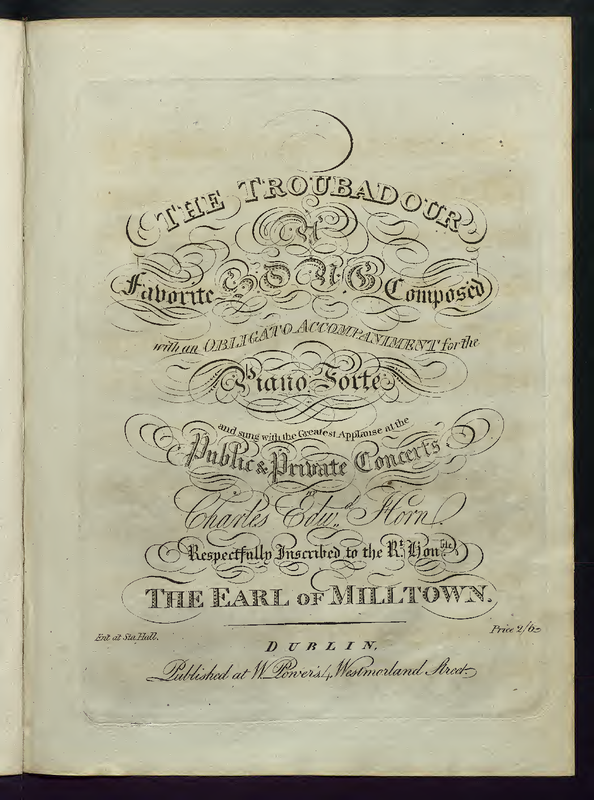 THE TROUBADOUR
A
Favorite SONG Composed
with an OBLIGATO ACCOMPANIMENT for the
Piano Forte
and sung with the Greatest Applause at the
Public & Private Concerts
by
Charles Edwd. Horn.
Respectfully Inscribed to the Rt. Honble.
THE EARL OF MILLTOWN.
Ent. at Sta. Hall.
Price 2/6
DUBLIN,
Published at W. Power's 4, Westmorland Street